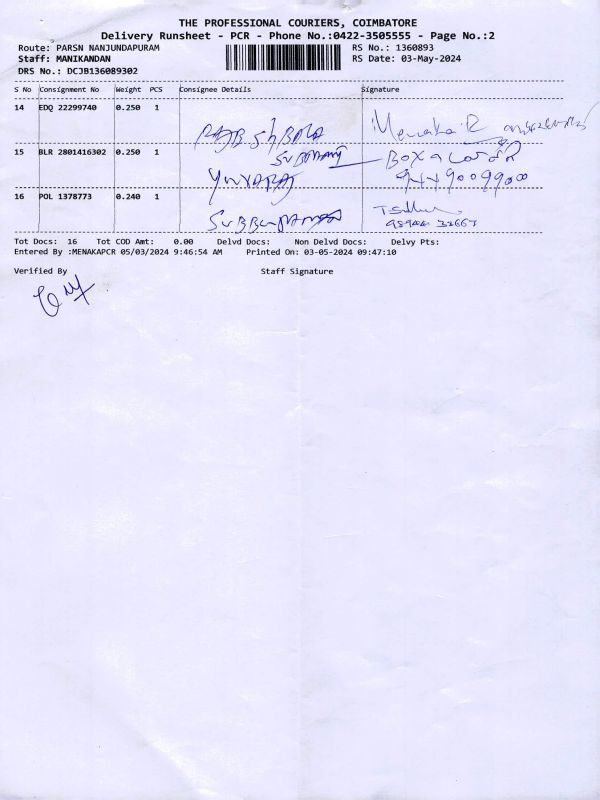 THE PROFESSIONAL COURIERS, COIMBATORE
Delivery Runsheet - PCR - Phone No.:0422-3505555 - Page No.:2
Route: PARSN NANJUNDAPURAM RS No.: 1360893
Staff: MANIKANDAN RS Date: 03-May-2024
DRS No.: DCJB136089302
S No Consignment No Weight PCS Consignee Details Signature
14 EDQ 22299740 0.250 1
Menaka R
15 BLR 2801416302 0.250 1
YUVARAJ 9449009900
16 POL 1378773 0.240 1
Tot Docs: 16 Tot COD Amt: 0.00 Delvd Docs: Non Delvd Docs: Delvy Pts:
Entered By :MENAKAPCR 05/03/2024 9:46:54 AM Printed On: 03-05-2024 09:47:10
Verified By Staff Signature